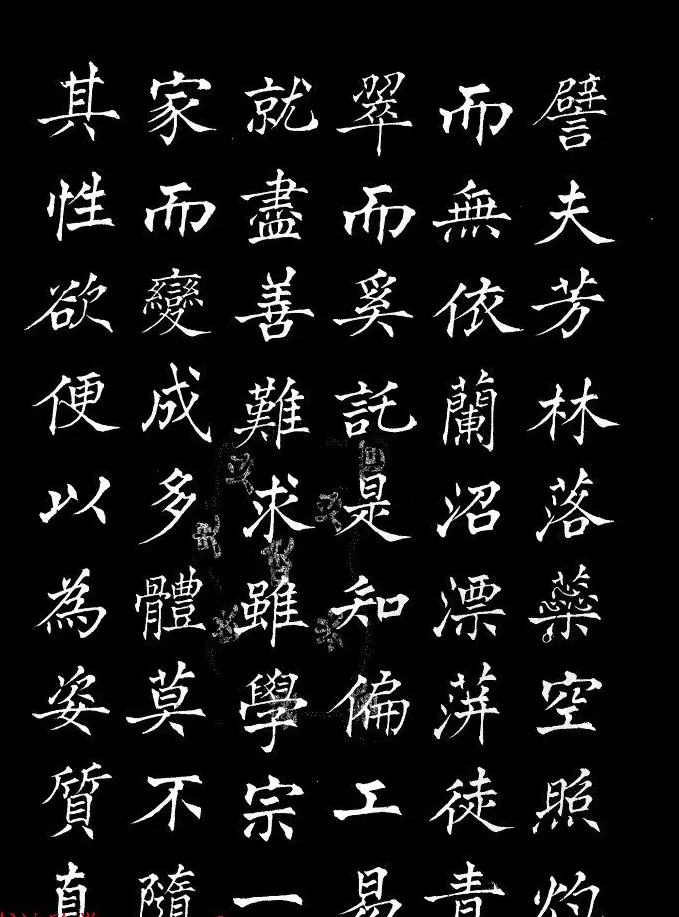 譬夫芳林落蘂空照灼
而無依蘭沼漂蓱徒青
翠而奚託是知偏工易
就盡善難求雖學宗一
家而變成多體莫不隨
其性欲便以為姿質直